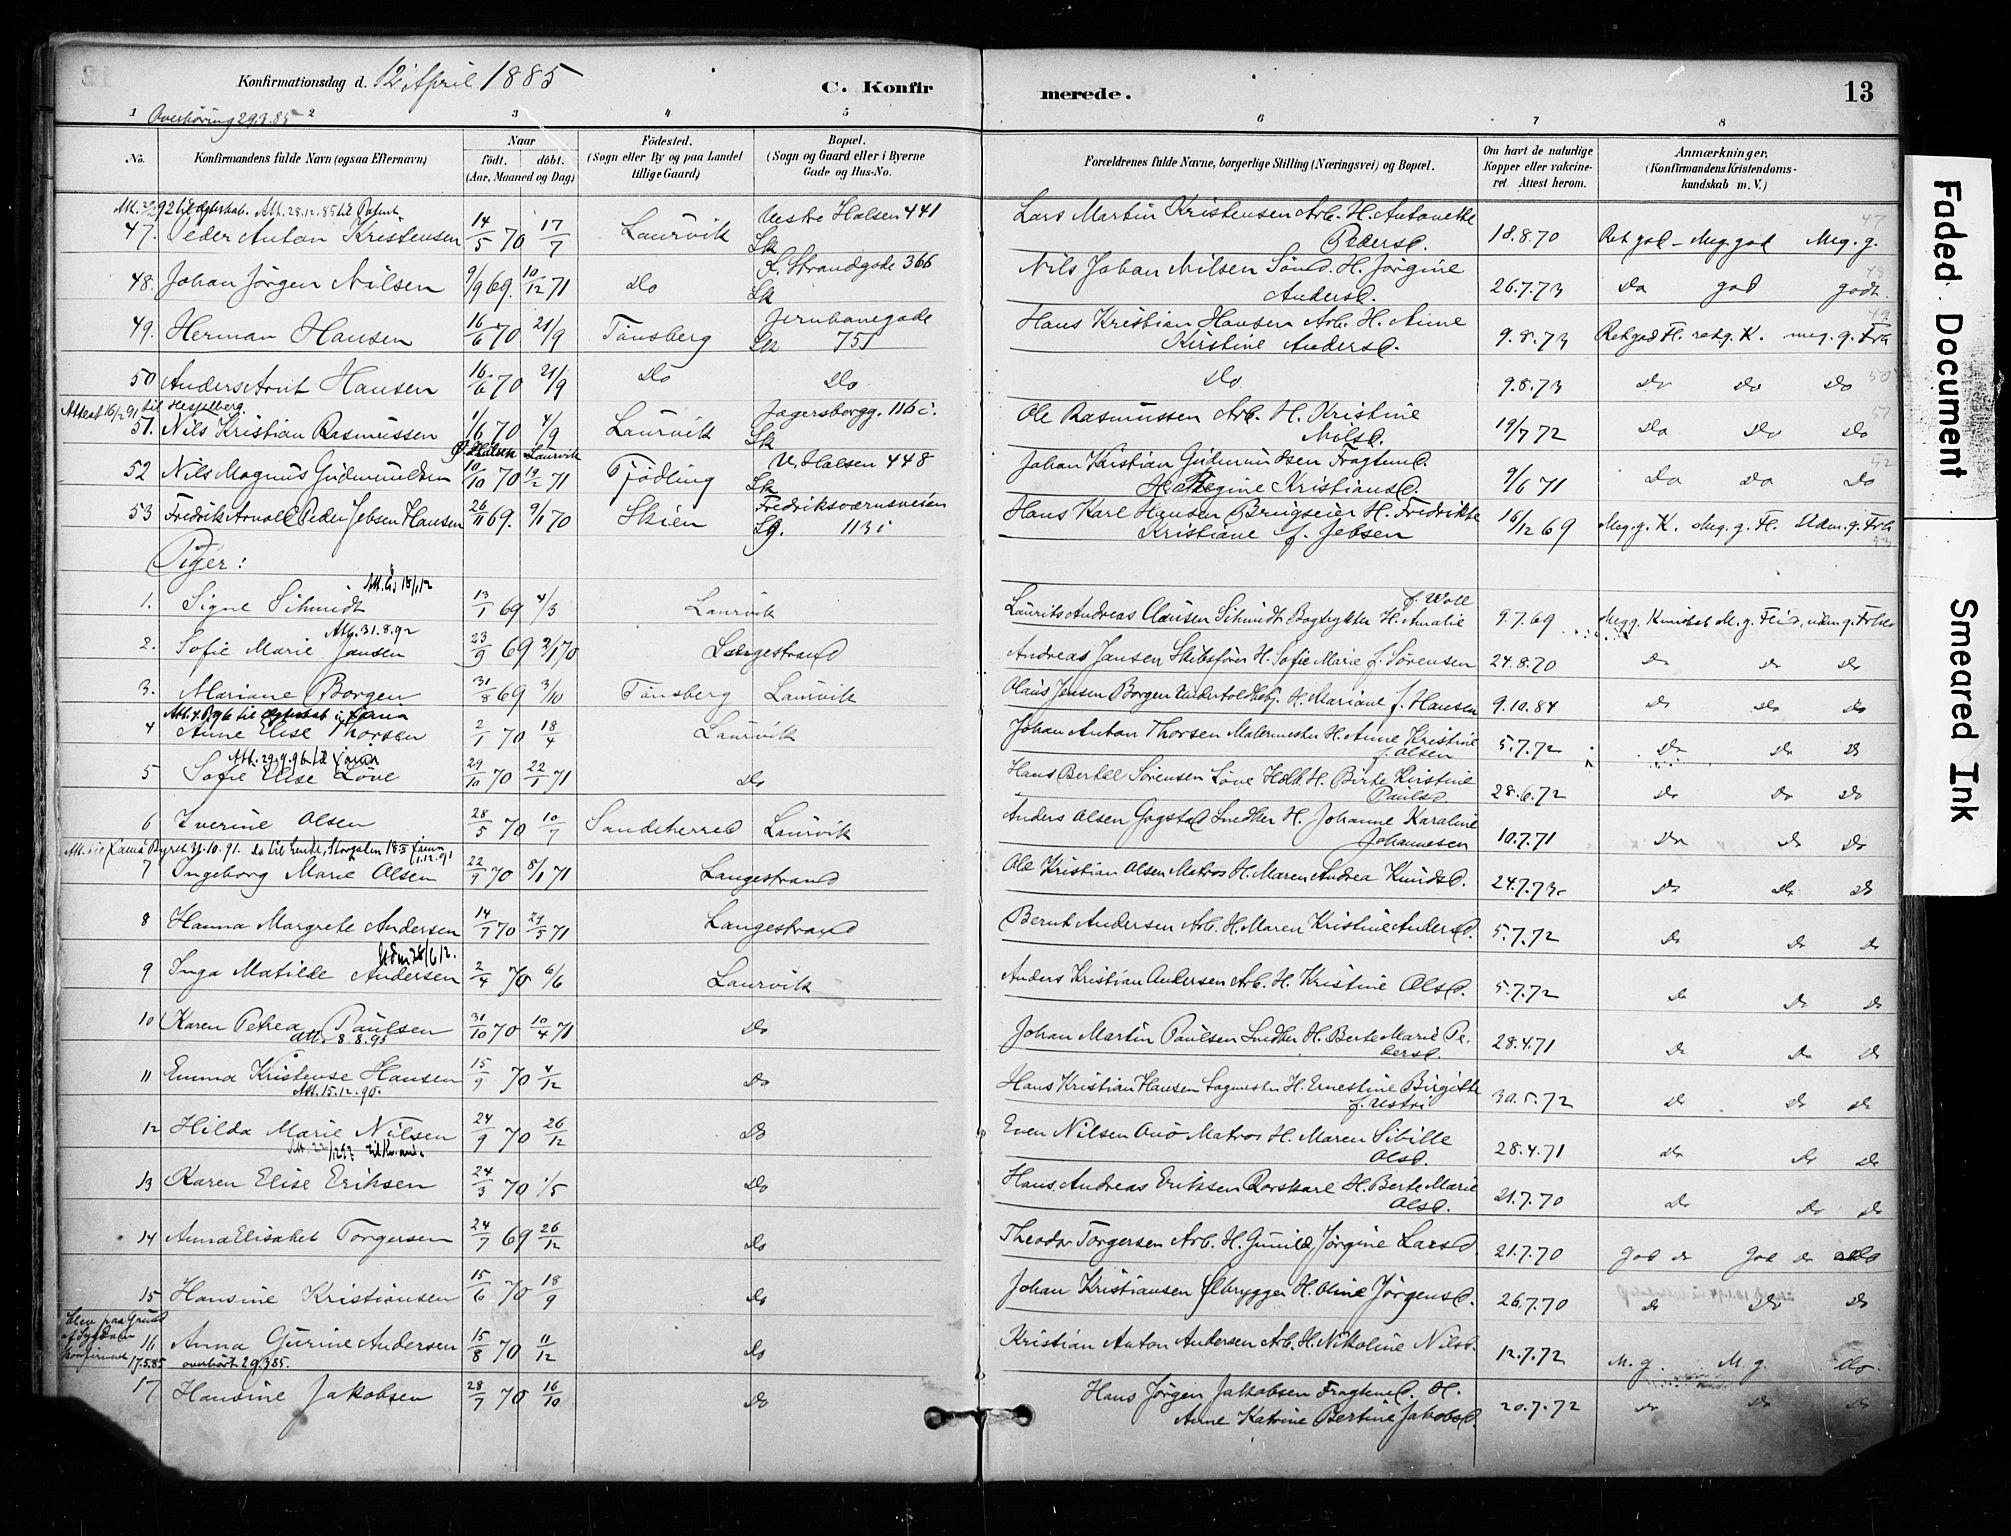 Konfirmationsdag d. 12 April 1885
C. Konfir
merede.
13
Overhöring 29.3.85
1 2 3 4 5 6 7 8
No.
Konfirmandens fulde Navn (ogsaa Efternavn)
Naar
födt. döbt.
(Aar, Maaned og Dag)
Födested.
(Sogn eller By og paa Landet
tillige Gaard)
Bopæl.
(Sogn og Gaard eller i Byerne
Gade og Hus-No.
Forældrenes fulde Navne, borgerlige Stilling (Næringsvei) og Bopæl.
Om havt de naturlige
Kopper eller vakcine-
ret. Attest herom.
Anmærkninger,
(Konfirmandens Kristendoms-
kundskab m. V.)
47. Peder Anton Kristensen 14/5 70 17/7 Laurvik Vestre Halsen 441 Sk Lars Martin Kristensen Arb. H. Antonette Pedersd. 18.8.70 Ret god - Meg. god Meg. g.
48. Johan Jörgen Nilsen 9/9 69. 10/12 71 Do L. Strandgade 366 Sk Nils Johan Nilsen Smed. H. Jörgine Andersd. 26.7.73 Do god godt.
49. Herman Hansen 16/6 70 21/9 Tönsberg Jernbanegade 751 Sk Hans Kristian Hansen Arb. H. Anne Kirstine Andersd. 9.8.73 Ret god F. ret g. K. meg. g. Frh
50 Anders Arnt Hansen 16/6 70 21/9 Do Do Do 9.8.73 Do Do Do
Attest 16/2 91 til Hesselberg.
51. Nils Kristian Rasmussen 1/6 70 4/9 Laurvik Jagersborgg. 116 c. Sk Ole Rasmussen Arb. H. Kristine Nilsd. 19/7 72 Do Do Do
52 Nils Magnus Gudmundsen 10/10 70 19/2 71 Tjödling V. Halsen 448 Sk Johan Kristian Gudmundsen Fragtmd. H. Regine Kristiansd. 9/6 71 Do Do Do
53 Fredrik Arnold Peder Jebsen Hansen 26/11 69. 9/1 70 Skien Fredriksværnsveien 113 c Sg. Hans Karl Hansen Brugseier H. Fredrikke Kristiane f. Jebsen 16/12 69 Meg. g. K. Meg. g. F. Udm. g. Frh
Piger:
1. Signe Schmidt 13/1 69 4/3 Laurvik Laurits Andreas Clausen Schmidt Bogtrykker H. Amalie f. Woll 9.7.69
Att. 31.8.92
2. Sofie Marie Jansen 23/9 69 2/1 70 Langestrand Andreas Jansen Skibsförer H. Sofie Marie f. Sörensen 24.8.70 Do Do Do
3. Mariane Borgen 31/8 69 3/10 Tönsberg Laurvik Olaus Jensen Borgen Undertoldbetj. H. Mariane f. Hansen 9.10.84 Do Do Do
4 Anne Elise Thorsen 2/1 70 18/4 Laurvik Johan Anton Thorsen Malermester H. Anne Kristine f. Olsen 5.7.72 Do Do Do
5 Sofie Elise Löve 29/10 70 22/1 71 Do Hans Bertel Sörensen Löve H. Birte Kirstine Paulsd. 28.6.72 Do Do Do
6 Iverine Olsen 28/5 70 10/7 Sandeherred Laurvik Anders Olsen Gogstad Snedker H. Johanne Karoline Johannesen 10.7.71 Do Do Do
7 Ingeborg Marie Olsen 22/9 70 8/1 71 Langestrand Ole Kristian Olsen Matros H. Maren Andrea Knudsd. 24.7.73 Do Do Do
8 Hanna Margrete Andersen 14/7 70 29/5 71 Langestrand Bernt Andersen Arb. H. Maren Kristine Andersd. 5.7.72 Do Do Do
9 Inga Matilde Andersen 2/4 70 6/6 Laurvik Anders Kristian Andersen Arb. H. Kristine Olsd. 5.7.72 Do Do Do
10 Karen Petrea Paulsen 31/10 70 10/4 71 Do Johan Martin Paulsen Snedker H. Berte Marie Pedersd. 28.4.71 Do Do Do
Att. 8.8.95
11 Emma Kristense Hansen 15/9 70 4/12 Do Hans Kristian Hansen Sagmester H. Ernestine Birgitte f. Ustri 30.5.72 Do Do Do
Att. 15.12.90.
12 Hilda Marie Nilsen 24/9 70 26/12 Do Even Nilsen Anö Matros H. Maren Sibille Olsd. 28.4.71 Do Do Do
13 Karen Elise Eriksen 24/3 70 1/5 Do Hans Andreas Eriksen Rorskarl H. Berte Marie Olsd. 21.7.70 Do Do Do
14 Anna Elisabet Torgersen 24/7 69 26/12 Do Theodor Torgersen Arb. H. Gunild Jörgine Larsd. 21.7.70 God do God do do
15 Hansine Kristiansen 15/6 70 18/9 Do Johan Kristiansen Ölbrygger H. Oline Jörgensd. 26.7.70 Do Do Do
Blev paa Grund af Sygdom konfirmeret 17.5.85
16 Anna Gurine Andersen 15/8 70 11/12 Do Kristian Anton Andersen Arb. H. Nikoline Nilsd. 12.7.72 M. g. M. g. Do.
overhört 29.3.85.
17 Hansine Jakobsen 28/7 70 16/10 Do Hans Jörgen Jakobsen Fragtmd. H. Anne Katrine Bertine Jakobsd. 20.7.72 Do Do Do
Faded Document
Smeared Ink